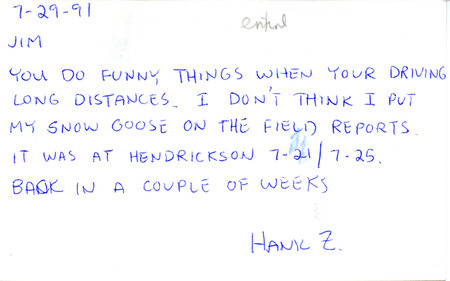 7-29-91
JIM
YOU DO FUNNY THINGS WHEN YOUR DRIVING
LONG DISTANCES. I DON'T THINK I PUT
MY SNOW GOOSE ON THE FIELD REPORTS.
IT WAS AT HENDRICKSON 7-21/7-25.
BACK IN A COUPLE OF WEEKS
HANK Z.